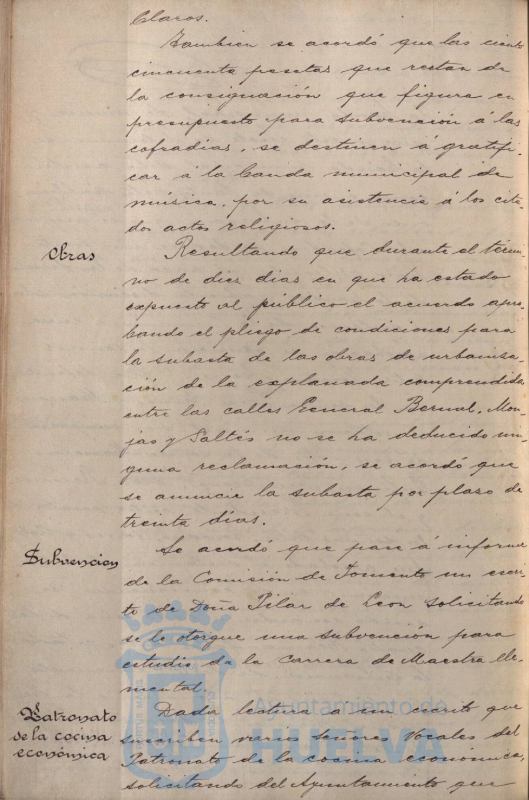 Claros.
Tambien se acordó que las ciento
cincuenta pesetas que restan de
la consignación que figura en
presupuesto para subvención á las
cofradias, se destinen á gratifi-
car á la banda municipal de
música, por su asistencia á los cita-
dos actos religiosos.
Obras
Resultando que durante el térmi-
no de diez dias en que ha estado
expuesto al público el acuerdo apro-
bando el pliego de condiciones para
la subasta de las obras de urbaniza-
ción de la explanada comprendida
entre las calles General Bernal, Mon-
jas y Saltés no se ha deducido nin-
guna reclamación, se acordó que
se anuncie la subasta por plazo de
treinta dias.
Subvencion
Se acordó que pase á informe
de la Comisión de Fomento un escri-
to de Doña Pilar de Leon solicitando
se le otorgue una subvención para
estudio de la carrera de Maestra Ele-
mental.
Patronato
de la cocina
económica
Dada lectura á un escrito que
suscriben varios señores Vocales del
Patronato de la cocina económica,
solicitando del Ayuntamiento que
Ayuntamiento de
HUELVA